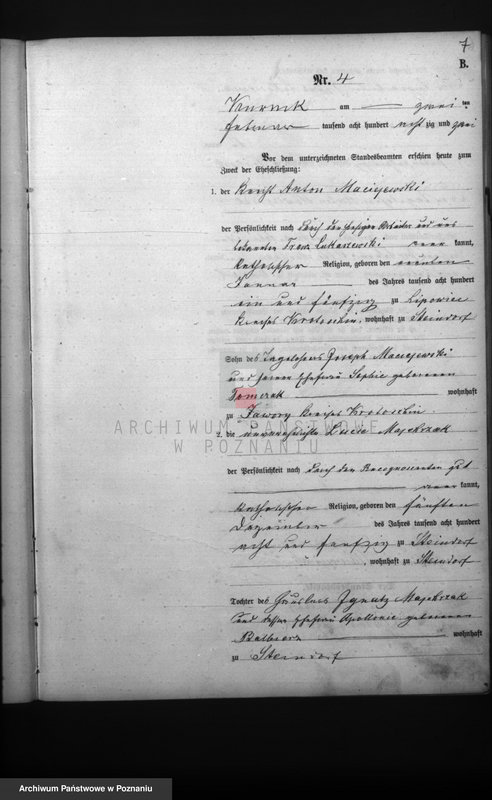 7
B.
Nr. 4
Kurnik am — zwei ten
Februar tausend acht hundert acht zig und zwei
Vor dem unterzeichneten Standesbeamten erschien heute zum
Zweck der Eheschließung:
1. der Knecht Anton Maciejewski
der Persönlichkeit nach durch den hiesigen Arbeiter und uns
bekannten Franz Lukaszewski kannt,
katholischer Religion, geboren den neunten
Januar des Jahres tausend acht hundert
ein und fünfzig zu Lipowiec
Kreises Krotoschin, wohnhaft zu Steindorf
Sohn des Tagelöhners Joseph Maciejewski
und seiner Ehefrau Sophie geborenen
Tomczak wohnhaft
zu Jawory Kreises Krotoschin
2. die unverehelichte Lucie Majchrzak
der Persönlichkeit nach durch den Recognoscenten
kannt,
katholischer Religion, geboren den fünften
Dezember des Jahres tausend acht hundert
acht und fünfzig zu Steindorf
, wohnhaft zu Steindorf
Tochter des Häuslers Ignatz Majchrzak
und dessen Ehefrau Apollonie geborenen
wohnhaft
zu Steindorf
ARCHIWUM PAŃSTWOWE
W POZNANIU
Archiwum Państwowe w Poznaniu